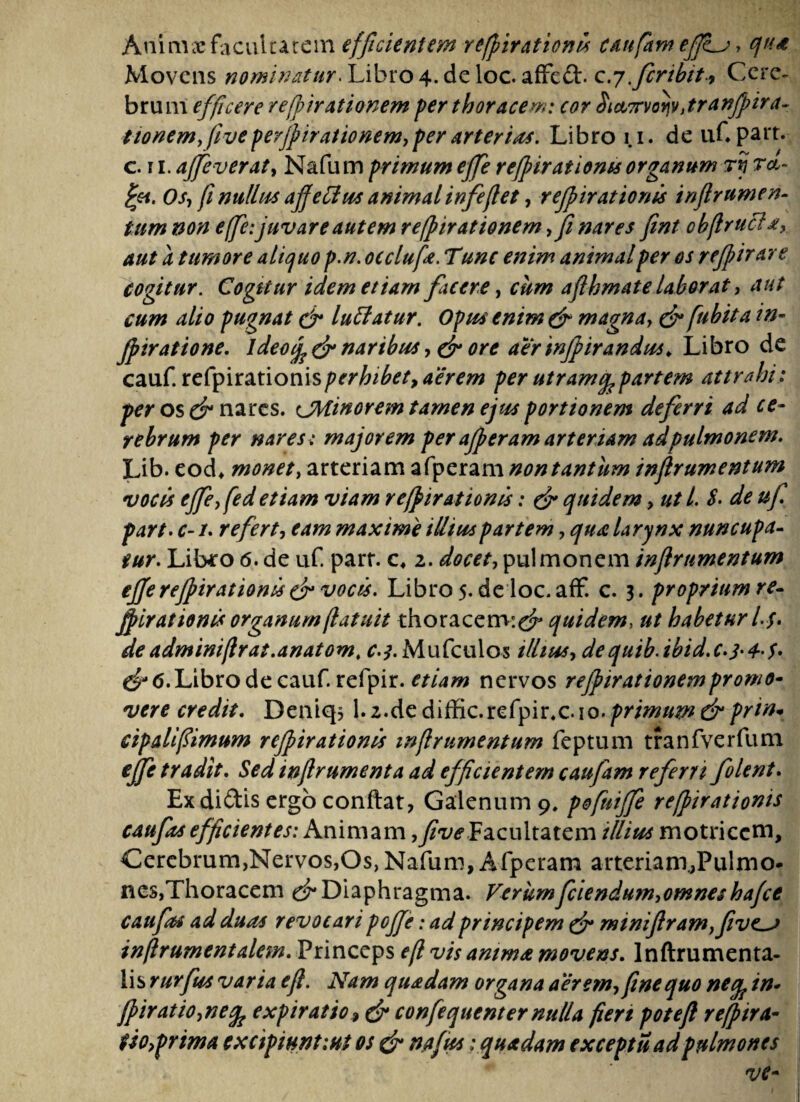 Animæ facultatem efficientem reſpirationis cauſam eſſe, quæ
Movens nominatur. Libro 4. de loc. affect. c.7. ſcribit, Cere-
brum efficere reſpirationem per thoracem: cor διαπνοὴν, tranſpira-
tionem, ſive perſpirationem, per arterias. Libro 11. de uſ. part.
c. 11. aſſeverat, Naſum primum eſſe reſpirationis organum τῇ τά-
ξει. Os, ſi nullus affectus animal infeſtet, reſpirationis inſtrumen-
tum non eſſe: juvare autem reſpirationem, ſi nares ſint obſtructæ,
aut à tumore aliquo p.n. occluſæ. Tunc enim animal per os reſpirare
cogitur. Cogitur idem etiam facere, cùm aſthmate laborat, aut
cum alio pugnat & luctatur. Opus enim & magna, & ſubita in-
ſpiratione. Ideoq́; & naribus, & ore aër inſpirandus. Libro de
cauſ. reſpirationis perhibet, aërem per utramq́; partem attrahi:
per os & nares. Minorem tamen ejus portionem deferri ad ce-
rebrum per nares: majorem per aſperam arteriam ad pulmonem.
Lib. eod. monet, arteriam aſperam non tantùm inſtrumentum
vocis eſſe, ſed etiam viam reſpirationis: & quidem, ut l. 8. de uſ.
part. c. 1. refert, eam maximè illius partem, quæ larynx nuncupa-
tur. Libro 6. de uſ. part. c. 2. docet, pulmonem inſtrumentum
eſſe reſpirationis & vocis. Libro 5. de loc. aff. c. 3. proprium re-
ſpirationis organum ſtatuit thoracem: & quidem, ut habetur l.5.
de adminiſtrat. anatom. c.3. Muſculos illius, de quib. ibid. c.3. 4. 5.
& 6. Libro de cauſ. reſpir. etiam nervos reſpirationem promo-
vere credit. Deniq; l.2. de diffic. reſpir. c. 10. primum & prin-
cipaliſſimum reſpirationis inſtrumentum ſeptum tranſverſum
eſſe tradit. Sed inſtrumenta ad efficientem cauſam referri ſolent.
Ex dictis ergò conſtat, Galenum 9. poſuiſſe reſpirationis
cauſas efficientes: Animam, ſive Facultatem illius motricem,
Cerebrum, Nervos, Os, Naſum, Aſperam arteriam, Pulmo-
nes, Thoracem & Diaphragma. Verùm ſciendum, omnes haſce
cauſas ad duas revocari poſſe: ad principem & miniſtram, ſive
inſtrumentalem. Princeps eſt vis animæ movens. Inſtrumenta-
lis rurſus varia eſt. Nam quædam organa aërem, ſine quo neq́; in-
ſpiratio, neq́; expiratio, & conſequenter nulla fieri poteſt reſpira-
tio, prima excipiunt: ut os & naſus: quædam exceptū ad pulmones
ve-